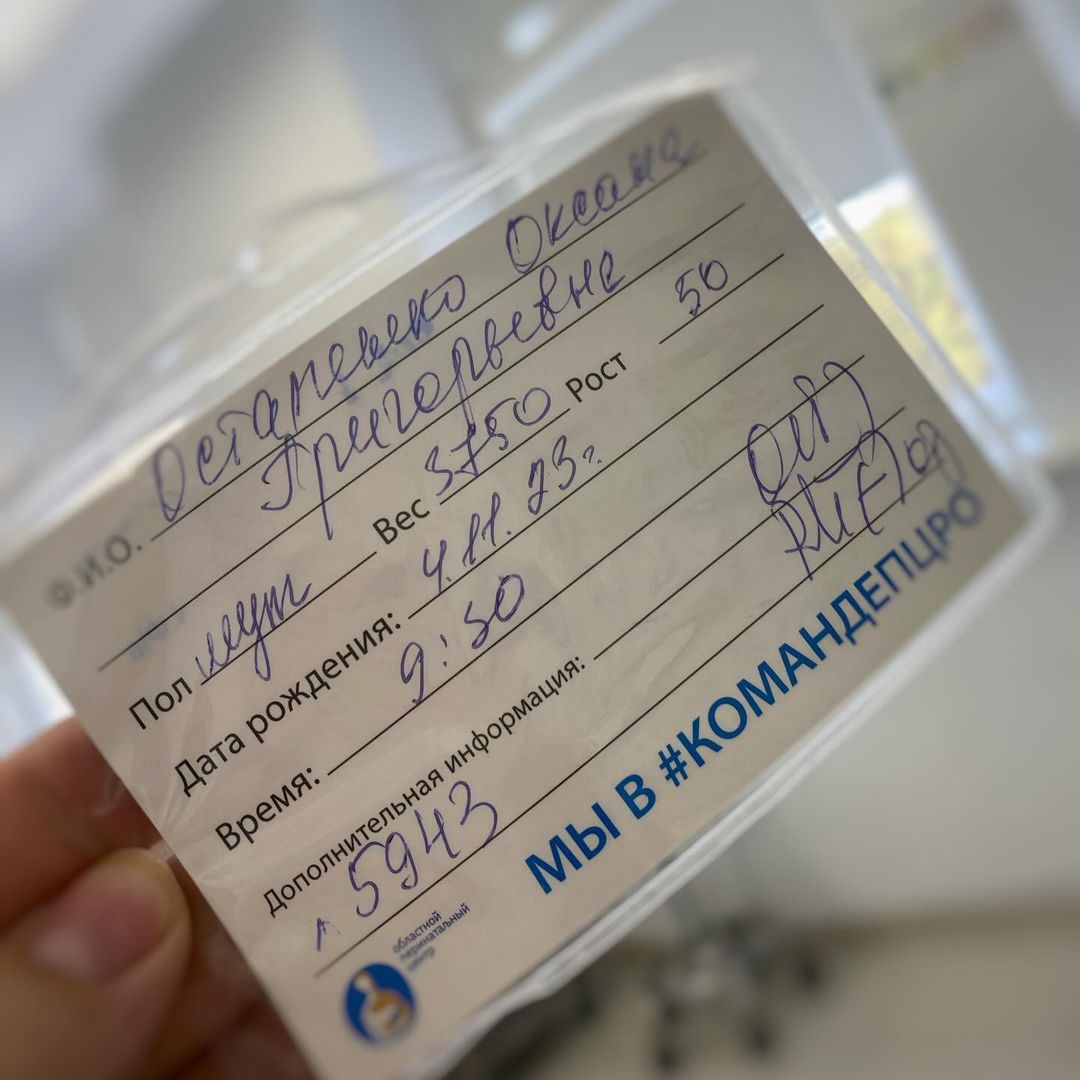 Ф.И.О. Остапенко Оксана
Григорьевна
Пол муж Вес 3750 Рост 50
Дата рождения: 4.11.23г.
Время: 9:50
Дополнительная информация:
5943
МЫ В #КОМАНДЕПЦРО
областной
перинатальный
центр